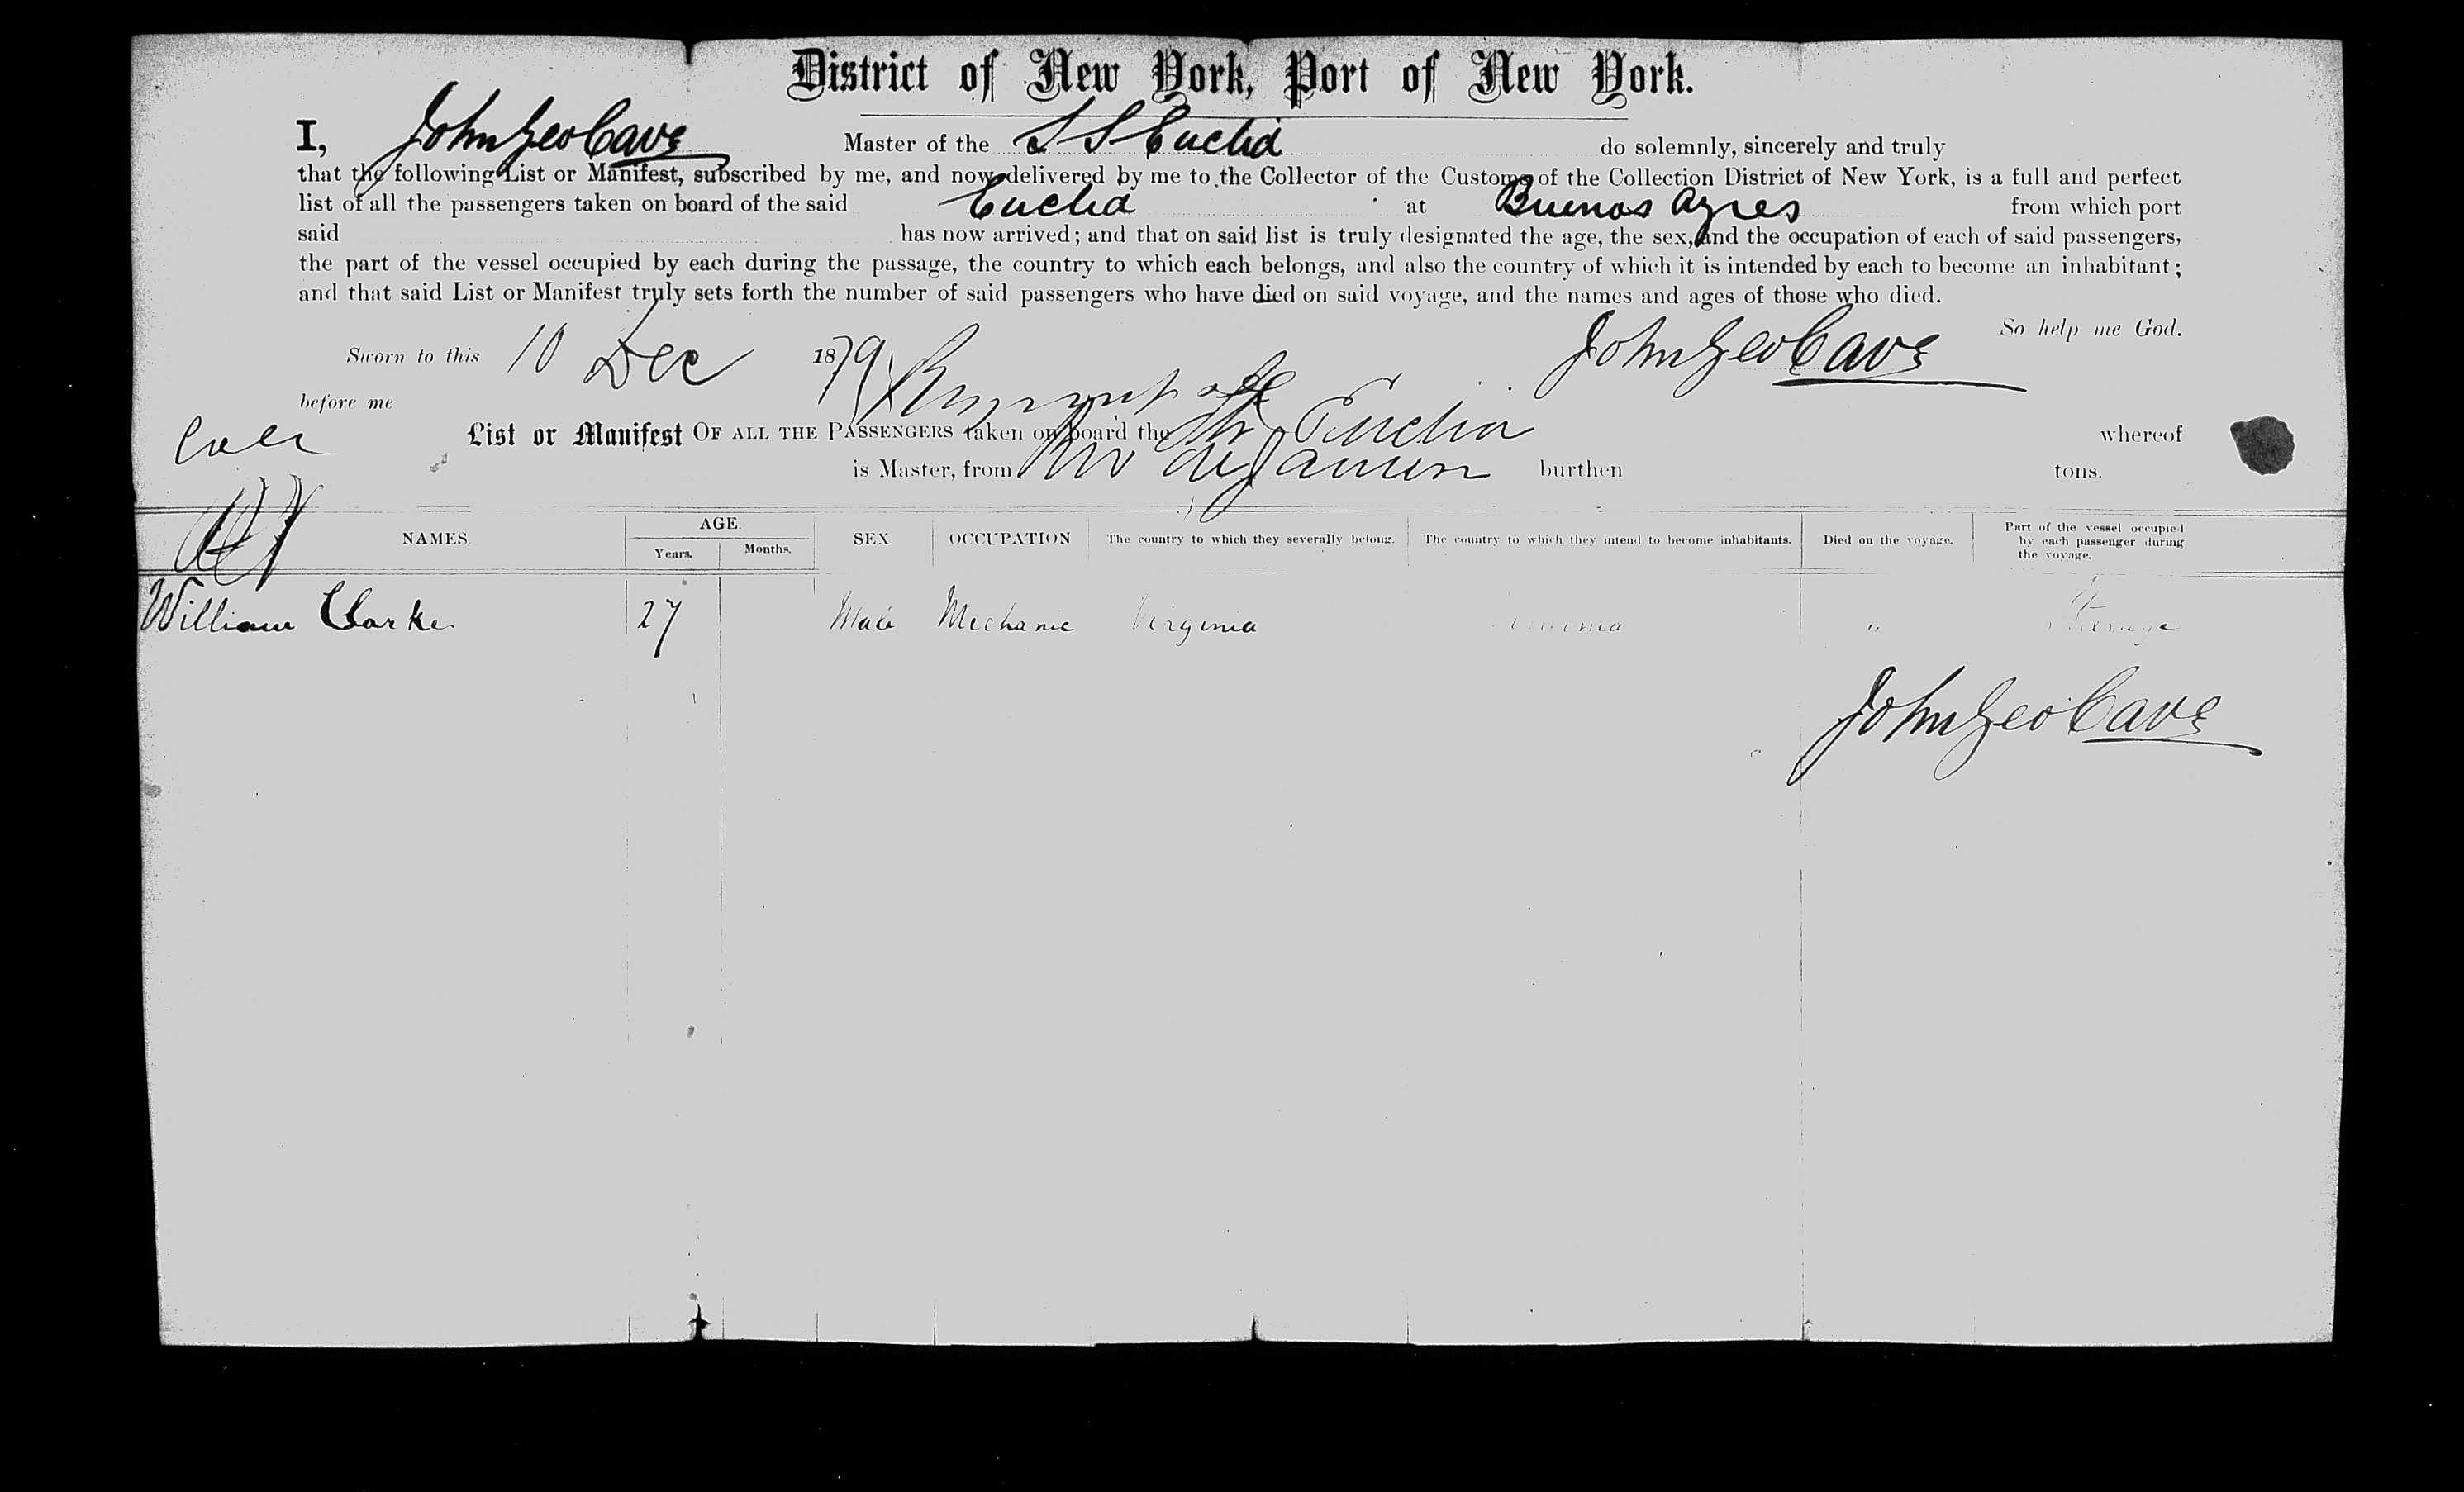 District of New York, Port of New York.
I, John Geo Cave Master of the SS Euclid do solemnly, sincerely and truly
that the following List or Manifest, subscribed by me, and now delivered by me to the Collector of the Customs of the Collection District of New York, is a full and perfect
list of all the passengers taken on board of the said Euclid at Buenos Ayres from which port
said has now arrived; and that on said list is truly designated the age, the sex, and the occupation of each of said passengers,
the part of the vessel occupied by each during the passage, the country to which each belongs, and also the country of which it is intended by each to become an inhabitant;
and that said List or Manifest truly sets forth the number of said passengers who have died on said voyage, and the names and ages of those who died.
So help me God.
Sworn to this 10 Dec 1879 John Geo Cave
before me
List or Manifest OF ALL THE PASSENGERS taken on board the Str Euclid whereof
is Master, from Rio de Janeiro burthen tons.
NAMES. AGE. Years. Months. SEX OCCUPATION The country to which they severally belong. The country to which they intend to become inhabitants. Died on the voyage. Part of the vessel occupied by each passenger during the voyage.
William Clarke 27 Male Mechanic Virginia " Steerage
John Geo Cave